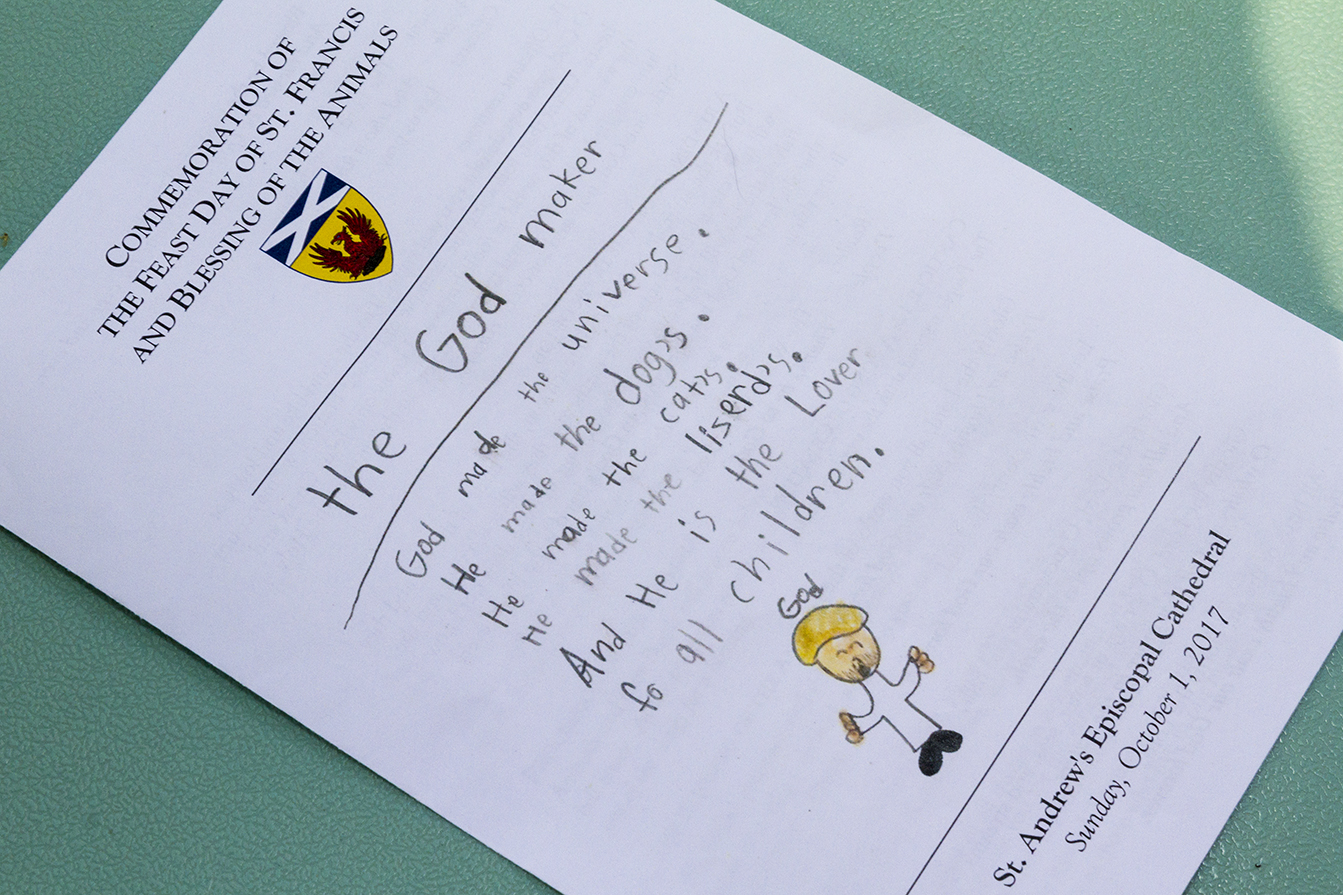 COMMEMORATION OF
THE FEAST DAY OF ST. FRANCIS
AND BLESSING OF THE ANIMALS
the God maker
God made the universe.
He made the dog's.
He made the cat's.
He made the liserd's.
And He is the Lover
fo all children.
God
St. Andrew's Episcopal Cathedral
Sunday, October 1, 2017